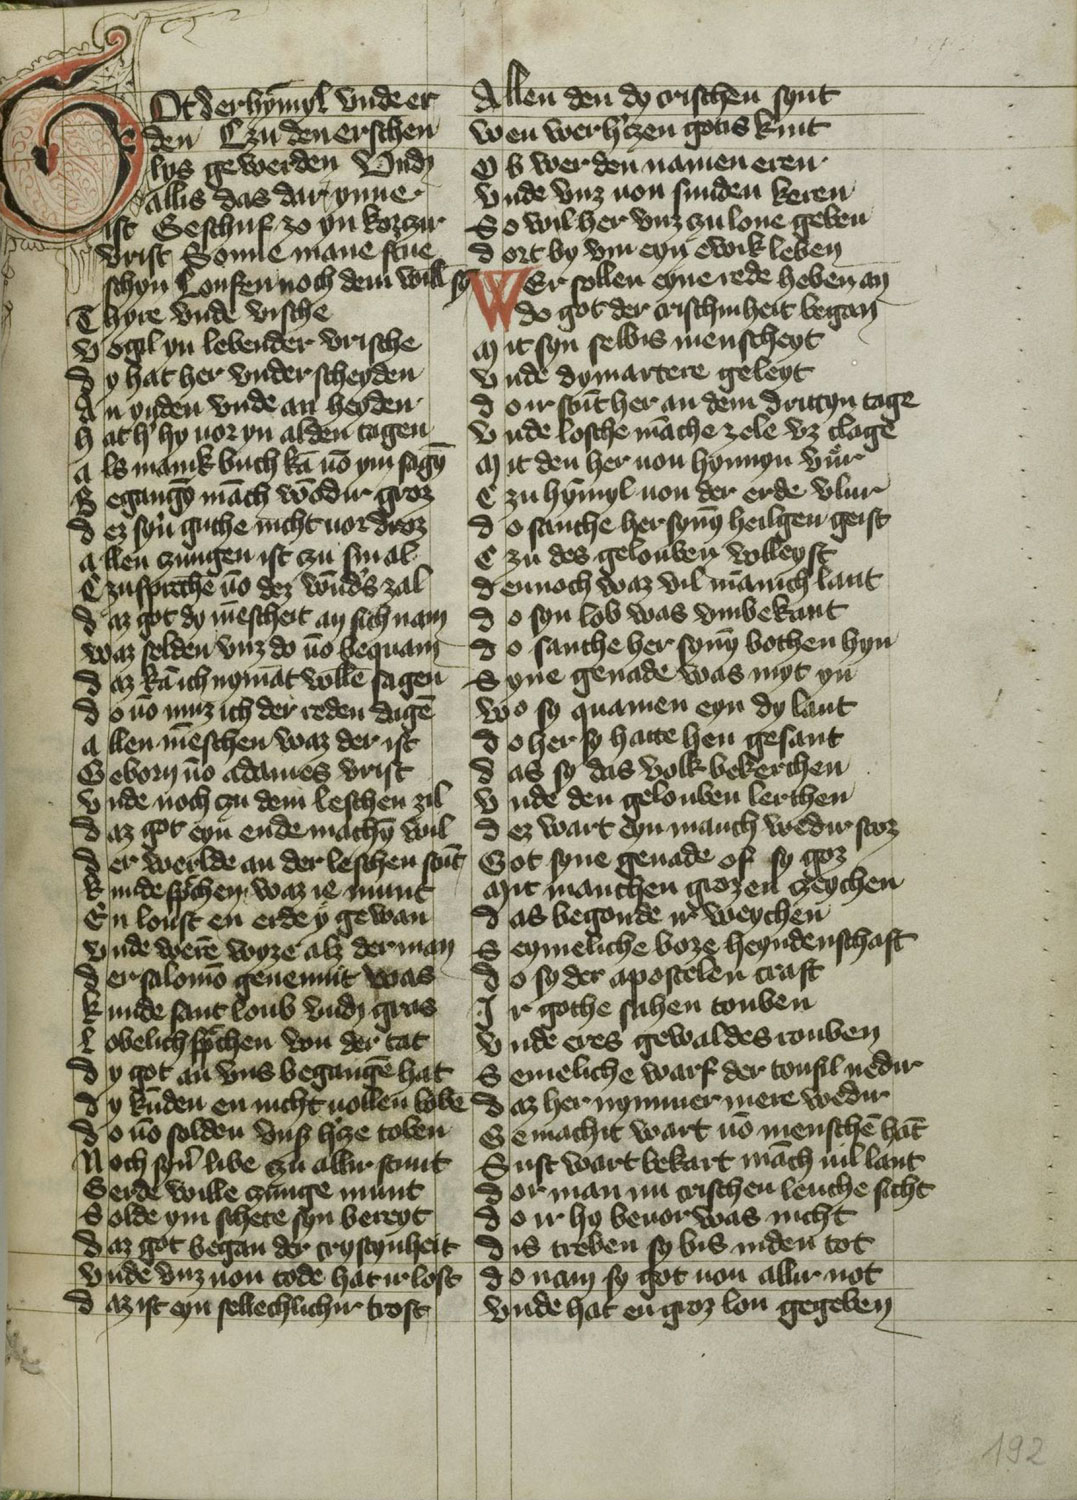 GOt der hȳmyl vnde er
den Czu den erschen
lys gewerden Vndy
allis das dar ynne
ist Geschuf zo yn korczir
vrist Sonne mane sc̄ne
schyn Loufen noch dem will sȳ
Thyre vnde vische
Vogil yn lebender vrische
dy hat her vnderscheyden
An yuden vnde an heyden
hat h' hy uor yn alden tagen
als manik buch kā uō ym sagȳ
Begangē māch wōdir groz
dez syn̄ guthe nicht uordroz
allen czungen ist czu smal
Czu sprechē uō dez wūd's zal
daz got dy mēscheit an sich nam
waz selden vnz do uō bequam
daz kā ich nymāt vollē sagen
do uō muz ich der reden dagē
allen mēschen waz der ist
Geborn uō adames vrist
vnde noch czu dem leschen zil
daz got eyn ende machȳ wil
der werlde an der leschen stūt
kunde sp̄chen waz ie munt
En louft en erde y gewan
vnde werē wyze alz der man
der salomō genennit was
kunde sant loub vndy gras
lobelich sp̄chen von der tat
dy got an vns begangē hat
dy kūden en nicht uollen lobe
do uō solden vnß h'cze toben
Noch syn̄ libe czu allir stunt
Gerde wille czunge munt
Solde ym schere syn bereyt
daz got began der crystynheit
vnde vnz uon tode hat irlost
daz ist eyn sellechlichir trost
Allen den dy crischen synt
wen wer h'czen gotis kint
Ob wer den namen eren
vnde vnz uon sunden keren
So wil her vnz czu lone geben
dort by ym eyn ewik leben
WEr sollen eyne rede heben an
do got der crischinheit began
Mit syn selbis menscheyt
vnde dy martere geleyt
do irstūt her an dem drittyn tage
vnde losche māche zele vz clage
Mit den her uon hynnyn vůr
Czu hȳmyl uon der erde vlur
do sanche her synȳ heilgen geist
Czu des gelouben volleyst
dennoch waz vil mānich lant
do syn lob was vmbekant
do sanche her synȳ bothen hyn
Syne genade was myt yn
wo sy quamen eyn dy lant
do her sy hatte hen gesant
das sy das volk bekerchen
vnde den gelouben lerthen
dez wart eyn manch wedir stoz
Got syne genade of sy goz
Mit manchen grozen czeychen
das begonde ir weychen
Seymeliche boze heyndenschaft
do sy der apostelen craft
Ir gothe sahen touben
vnde eres gewaldes rouben
Semeliche warf der toufil nedir
daz her nymmer mere wedir
Gemachit wart uō menschē hāt
Sust wart bekart māch uil lant
dor man nu crischen leuche sicht
do ir hy beuor was nicht
dis treben sy bis in den tot
do nam sy got uon allir not
vnde hat en groz lon gegeben
192